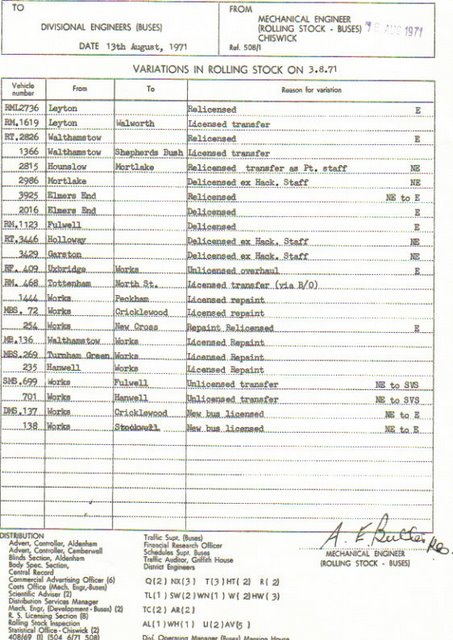 TO
DIVISIONAL ENGINEERS (BUSES)
DATE 13th August, 1971
FROM
MECHANICAL ENGINEER
(ROLLING STOCK - BUSES)
CHISWICK
AUG 1971
Ref. 508/1
VARIATIONS IN ROLLING STOCK ON 3.8.71
Vehicle number From To Reason for variation
RML2736 Leyton Relicensed E
RM.1619 Leyton Walworth Licensed transfer
RT.2826 Walthamstow Relicensed E
1366 Walthamstow Shepherds Bush Licensed transfer
2815 Hounslow Mortlake Relicensed transfer as Pt. staff NE
2986 Mortlake Delicensed ex Hack. Staff NE
3925 Elmers End Relicensed NE to E
2016 Elmers End Delicensed E
RM.1123 Fulwell Delicensed E
RT.3446 Holloway Delicensed ex Hack. Staff NE
3429 Garston Delicensed ex Hack. Staff NE
RF. 409 Uxbridge Works Unlicensed overhaul E
RM. 468 Tottenham North St. Licensed transfer (via B/O)
1444 Works Peckham Licensed repaint
MBS. 72 Works Cricklewood Licensed repaint
254 Works New Cross Repaint Relicensed E
MB.136 Walthamstow Works Licensed Repaint
MBS.269 Turnham Green Works Licensed Repaint
235 Hanwell Works Licensed Repaint
SMS.699 Works Fulwell Unlicensed transfer NE to SVS
701 Works Hanwell Unlicensed transfer NE to SVS
DMS.137 Works Cricklewood New bus licensed NE to E
138 Works Stockwell New bus licensed NE to E
A. E. Butler
MECHANICAL ENGINEER
(ROLLING STOCK - BUSES)
DISTRIBUTION
Advert. Controller, Aldenham
Advert. Controller, Camberwell
Blinds Section, Aldenham
Body Spec. Section,
Central Record
Commercial Advertising Officer (6)
Costs Office (Mech. Engr.-Buses)
Scientific Adviser (2)
Distribution Services Manager
Mech. Engr. (Development - Buses) (2)
R. S. Licensing Section (8)
Rolling Stock Inspection
Statistical Office - Chiswick (2)
408/69 (1) 504 6/71 508)
Traffic Supt. (Buses)
Financial Research Officer
Schedules Supt. Buses
Traffic Auditor, Griffith House
District Engineers
Q(2) NX(3) T(3) HT(2) R(2)
TL(1) SW(2) WN(1) W(2) HW(3)
TC(2) AR(2)
AL(1) WH(1) U(2) AV(5)
Divl. Operating Manager (Buses) Mansion House